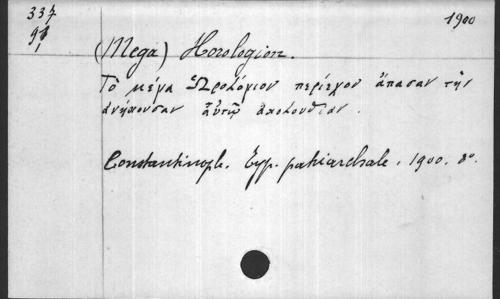 337
91
1900
(Mega) Horologion.
Τὸ μέγα Ὡρολόγιον περιέχον ἅπασαν τὴν
ἀνήκουσαν αὐτῷ ἀκολουθίαν.
Constantinople. Typ. patriarchale. 1900. 8º.